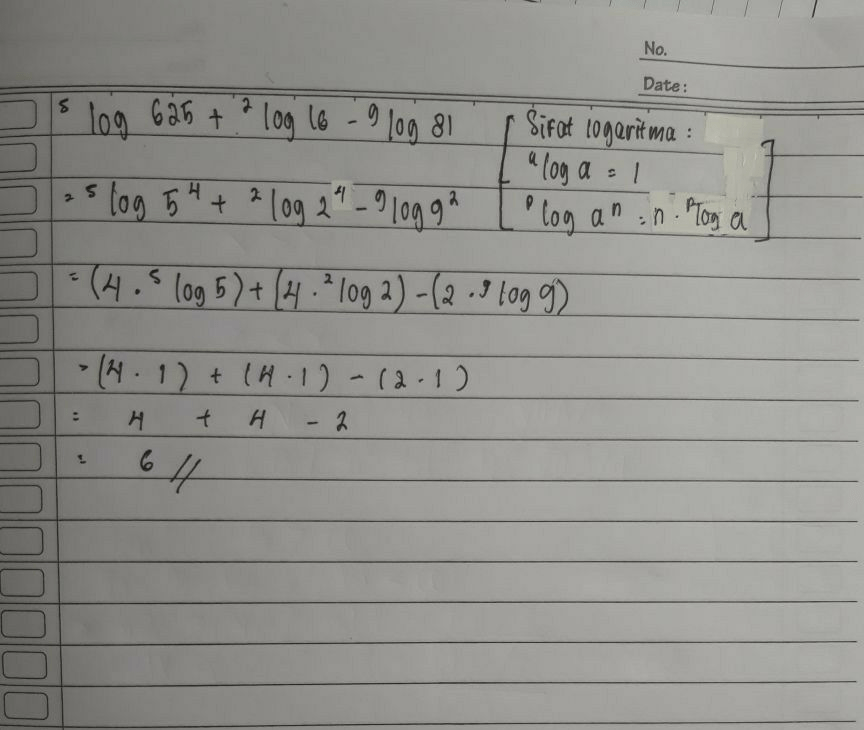 No.
Date:
⁵log 625 + ²log 16 - ⁹log 81
Sifat logaritma :
ᵃlog a = 1
= ⁵log 5⁴ + ²log 2⁴ - ⁹log 9²
ᵖlog aⁿ = n · ᵖlog a
= (4 . ⁵log 5) + (4 . ²log 2) - (2 . ⁹log 9)
= (4 . 1) + (4 . 1) - (2 . 1)
= 4 + 4 - 2
= 6 //